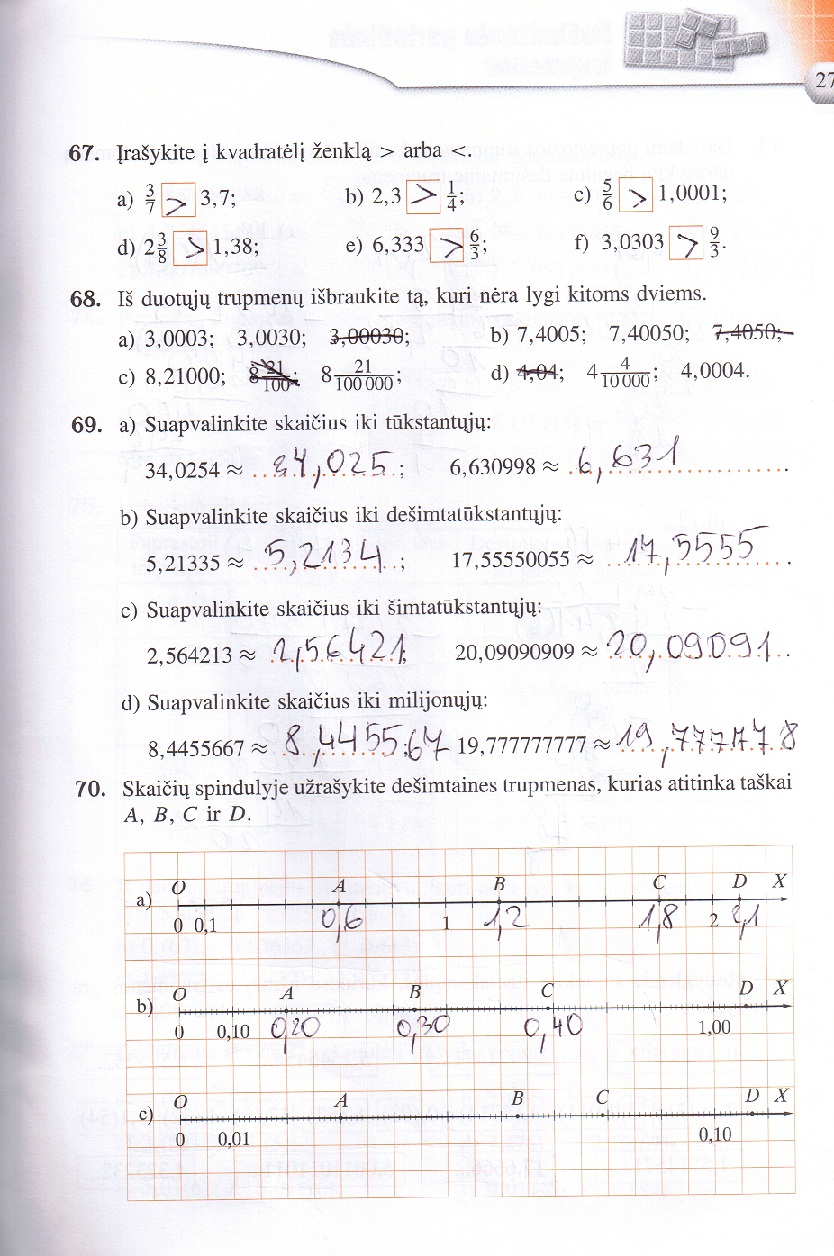 27
67. Įrašykite į kvadratėlį ženklą > arba <.
a) 3/7 > 3,7; b) 2,3 > 1/4; c) 5/6 > 1,0001;
d) 2 3/8 > 1,38; e) 6,333 > 6/3; f) 3,0303 > 9/3.
68. Iš duotųjų trupmenų išbraukite tą, kuri nėra lygi kitoms dviems.
a) 3,0003; 3,0030; 3,00030; b) 7,4005; 7,40050; 7,4050;
c) 8,21000; 8 21/100; 8 21/100 000; d) 4,04; 4 4/10 000; 4,0004.
69. a) Suapvalinkite skaičius iki tūkstantųjų:
34,0254 ≈ 34,025; 6,630998 ≈ 6,631.
b) Suapvalinkite skaičius iki dešimtatūkstantųjų:
5,21335 ≈ 5,2134; 17,55550055 ≈ 17,5555.
c) Suapvalinkite skaičius iki šimtatūkstantųjų:
2,564213 ≈ 2,56421; 20,09090909 ≈ 20,09091.
d) Suapvalinkite skaičius iki milijonųjų:
8,4455667 ≈ 8,445567; 19,777777777 ≈ 19,777778
70. Skaičių spindulyje užrašykite dešimtaines trupmenas, kurias atitinka taškai
A, B, C ir D.
O A B C D X
a)
0 0,1 0,6 1 1,2 1,8 2 2,1
O A B C D X
b)
0 0,10 0,20 0,30 0,40 1,00
O A B C D X
c)
0 0,01 0,10